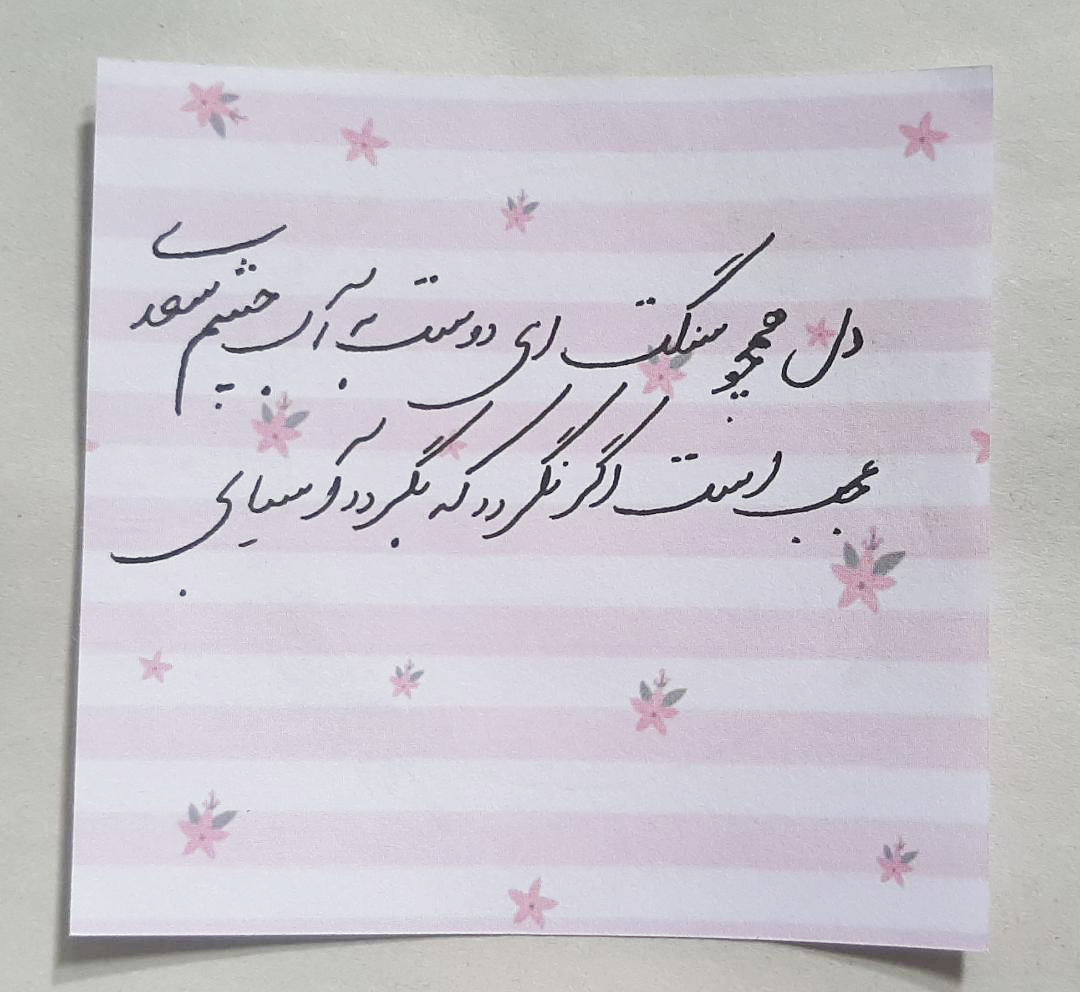 دل همچو سنگت ای دوست به آب چشم سعدی
عجب است اگر نگردد که بگردد آسیابی